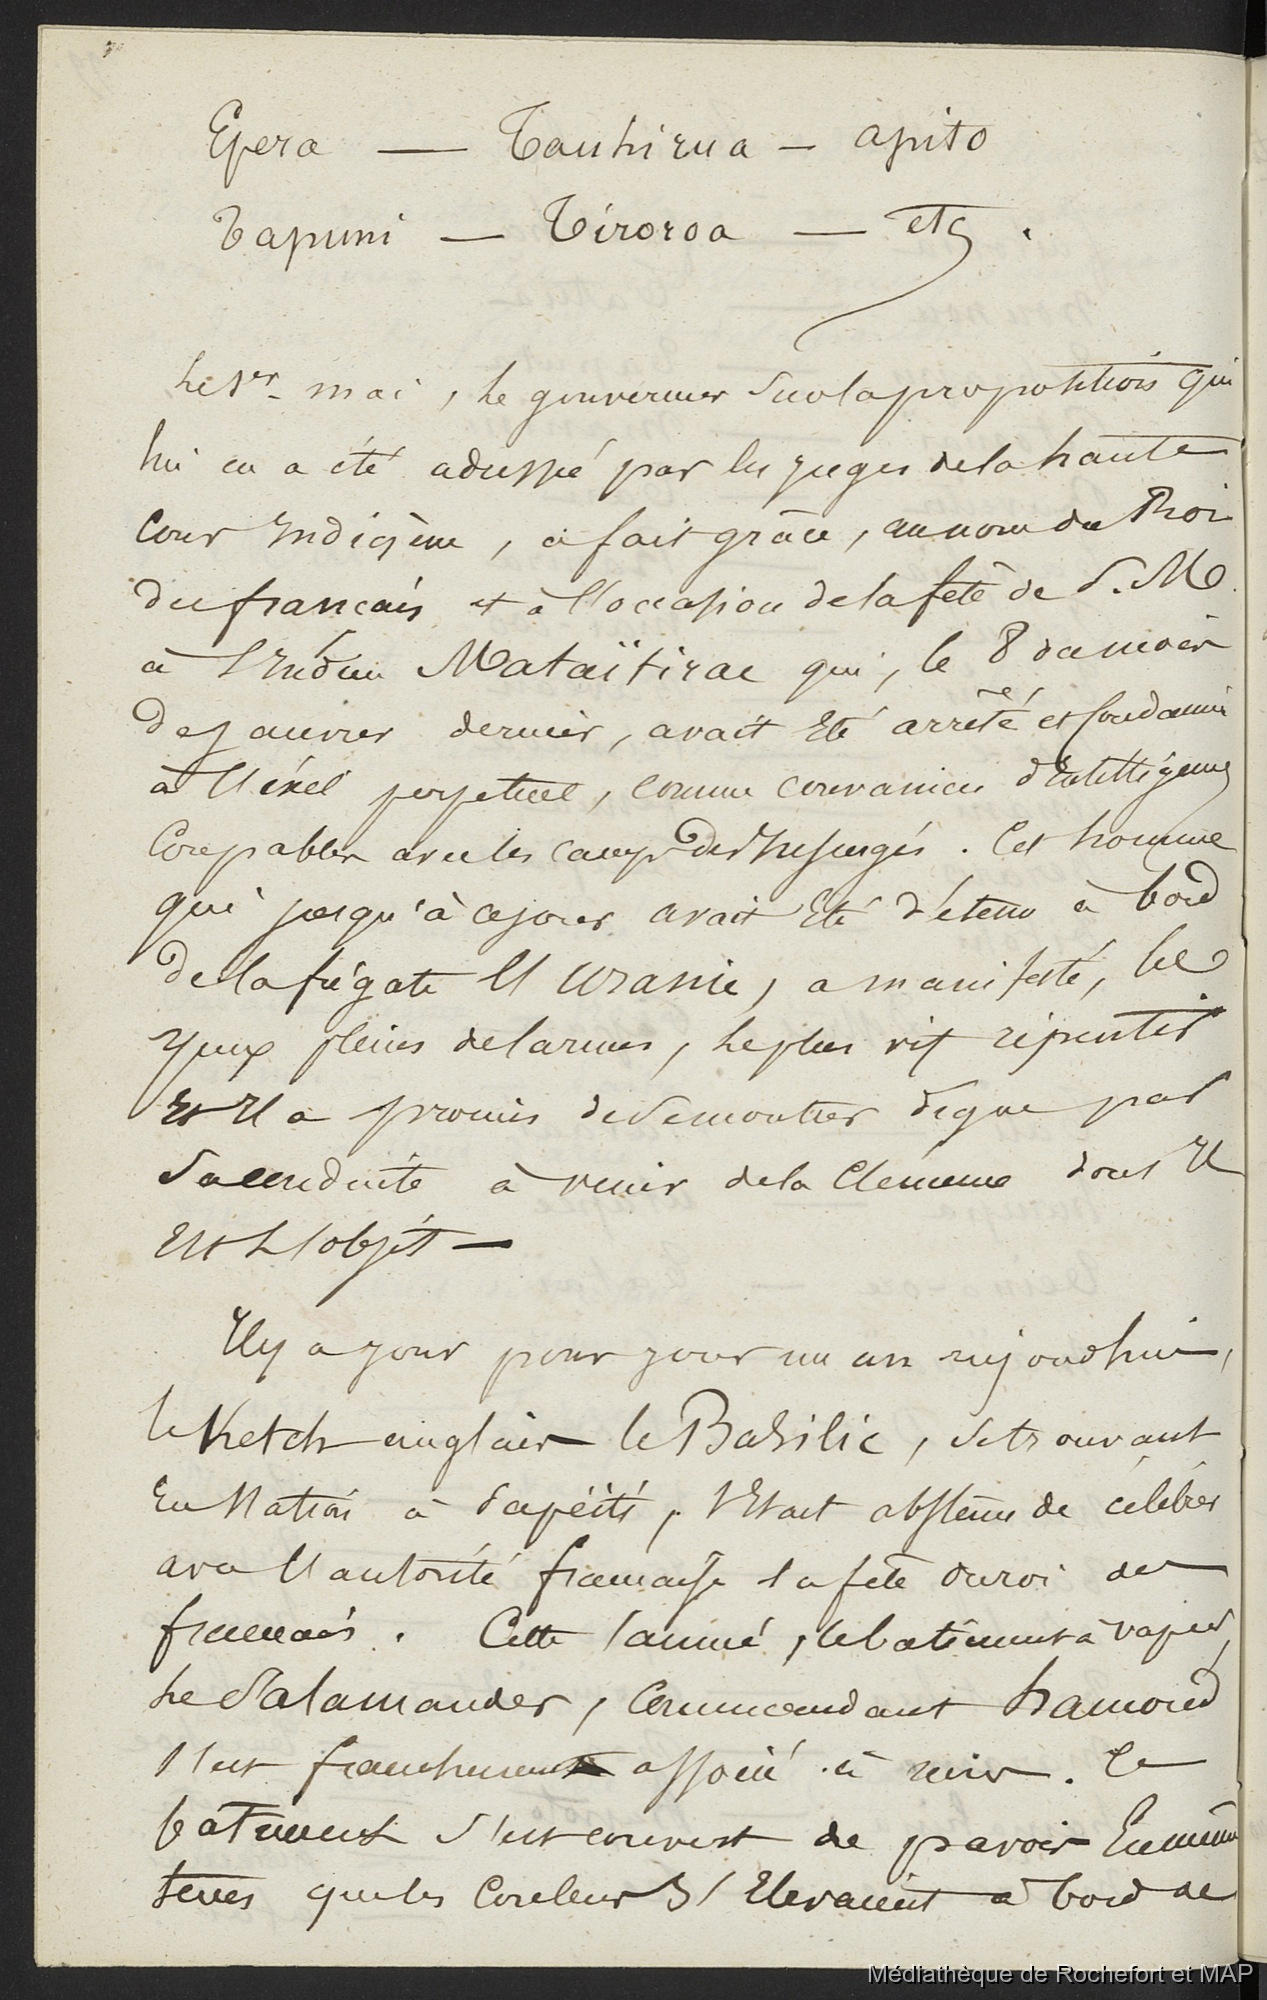 Epera — Tauhirua — apito
Tapuni — Tiroroa — etc.
Le 1er mai, le gouverneur sur la proposition qui
lui en a été adressée par les juges de la haute
Cour Indigène, a fait grâce, au nom du Roi
des français et à l'occasion de la fête de S. M.
à l'Indien Mataïtirae qui, le 8 du mois
de janvier dernier, avait Eté arrêté et Condamné
à l'éxil perpetuel, comme convaincu d'Intelligences
Coupables avec les camps des Insurgés. Cet homme
qui jusqu'à ce jour avait Eté détenu à bord
de la frégate l'Uranie, a manifesté, les
yeux pleins de larmes, le plus vif repentir
Et Il a promis de se montrer digne par
Sa conduite à venir de la Clémence dont Il
Est L'objet —
Il y a jour pour jour un an aujourdhui,
le Ketch anglais le Basilic, se trouvant
En Station à Papéiti, s'Etait abstenu de célébrer
avec l'autorité française la fête du roi des
français. Cette année, le batiment à vapeur,
Le Salamander, Commandant hamond
s'est franchement associé à nous. Ce
batiment s'est couvert de pavois En même
tems que les Couleurs s'Elevaient à bord de
Médiathèque de Rochefort et MAP